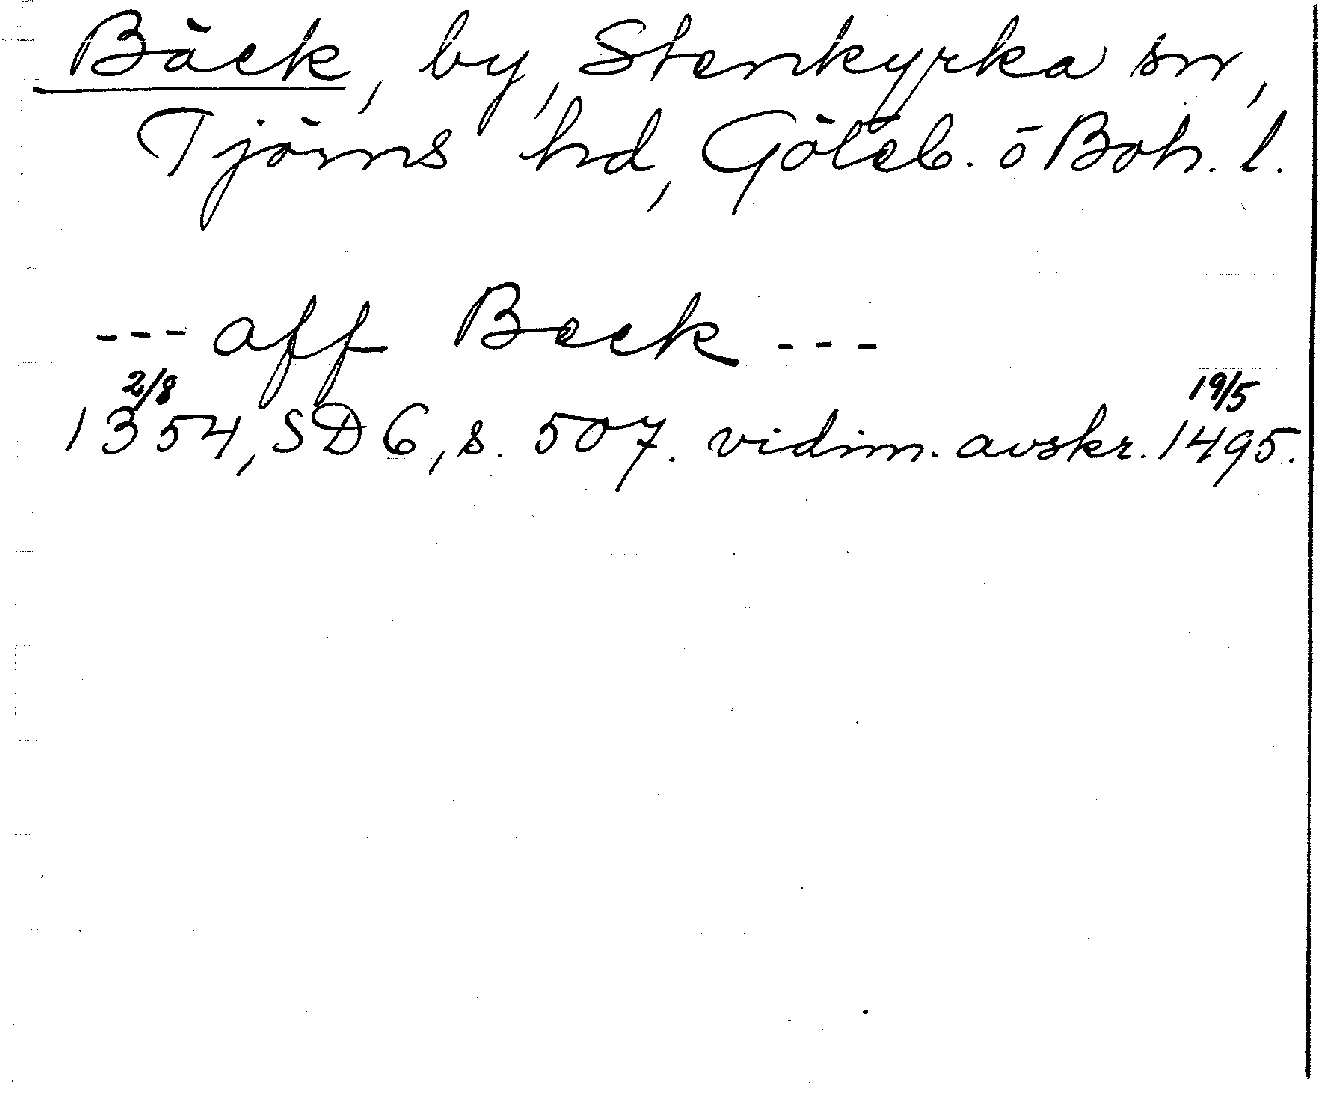 Bäck, by, Stenkyrka sn,
Tjörns hd, Göteb. o Boh. l.
--- aff Beck ---
2/8 19/5
1354, SD 6, s. 507. vidim. avskr. 1495.